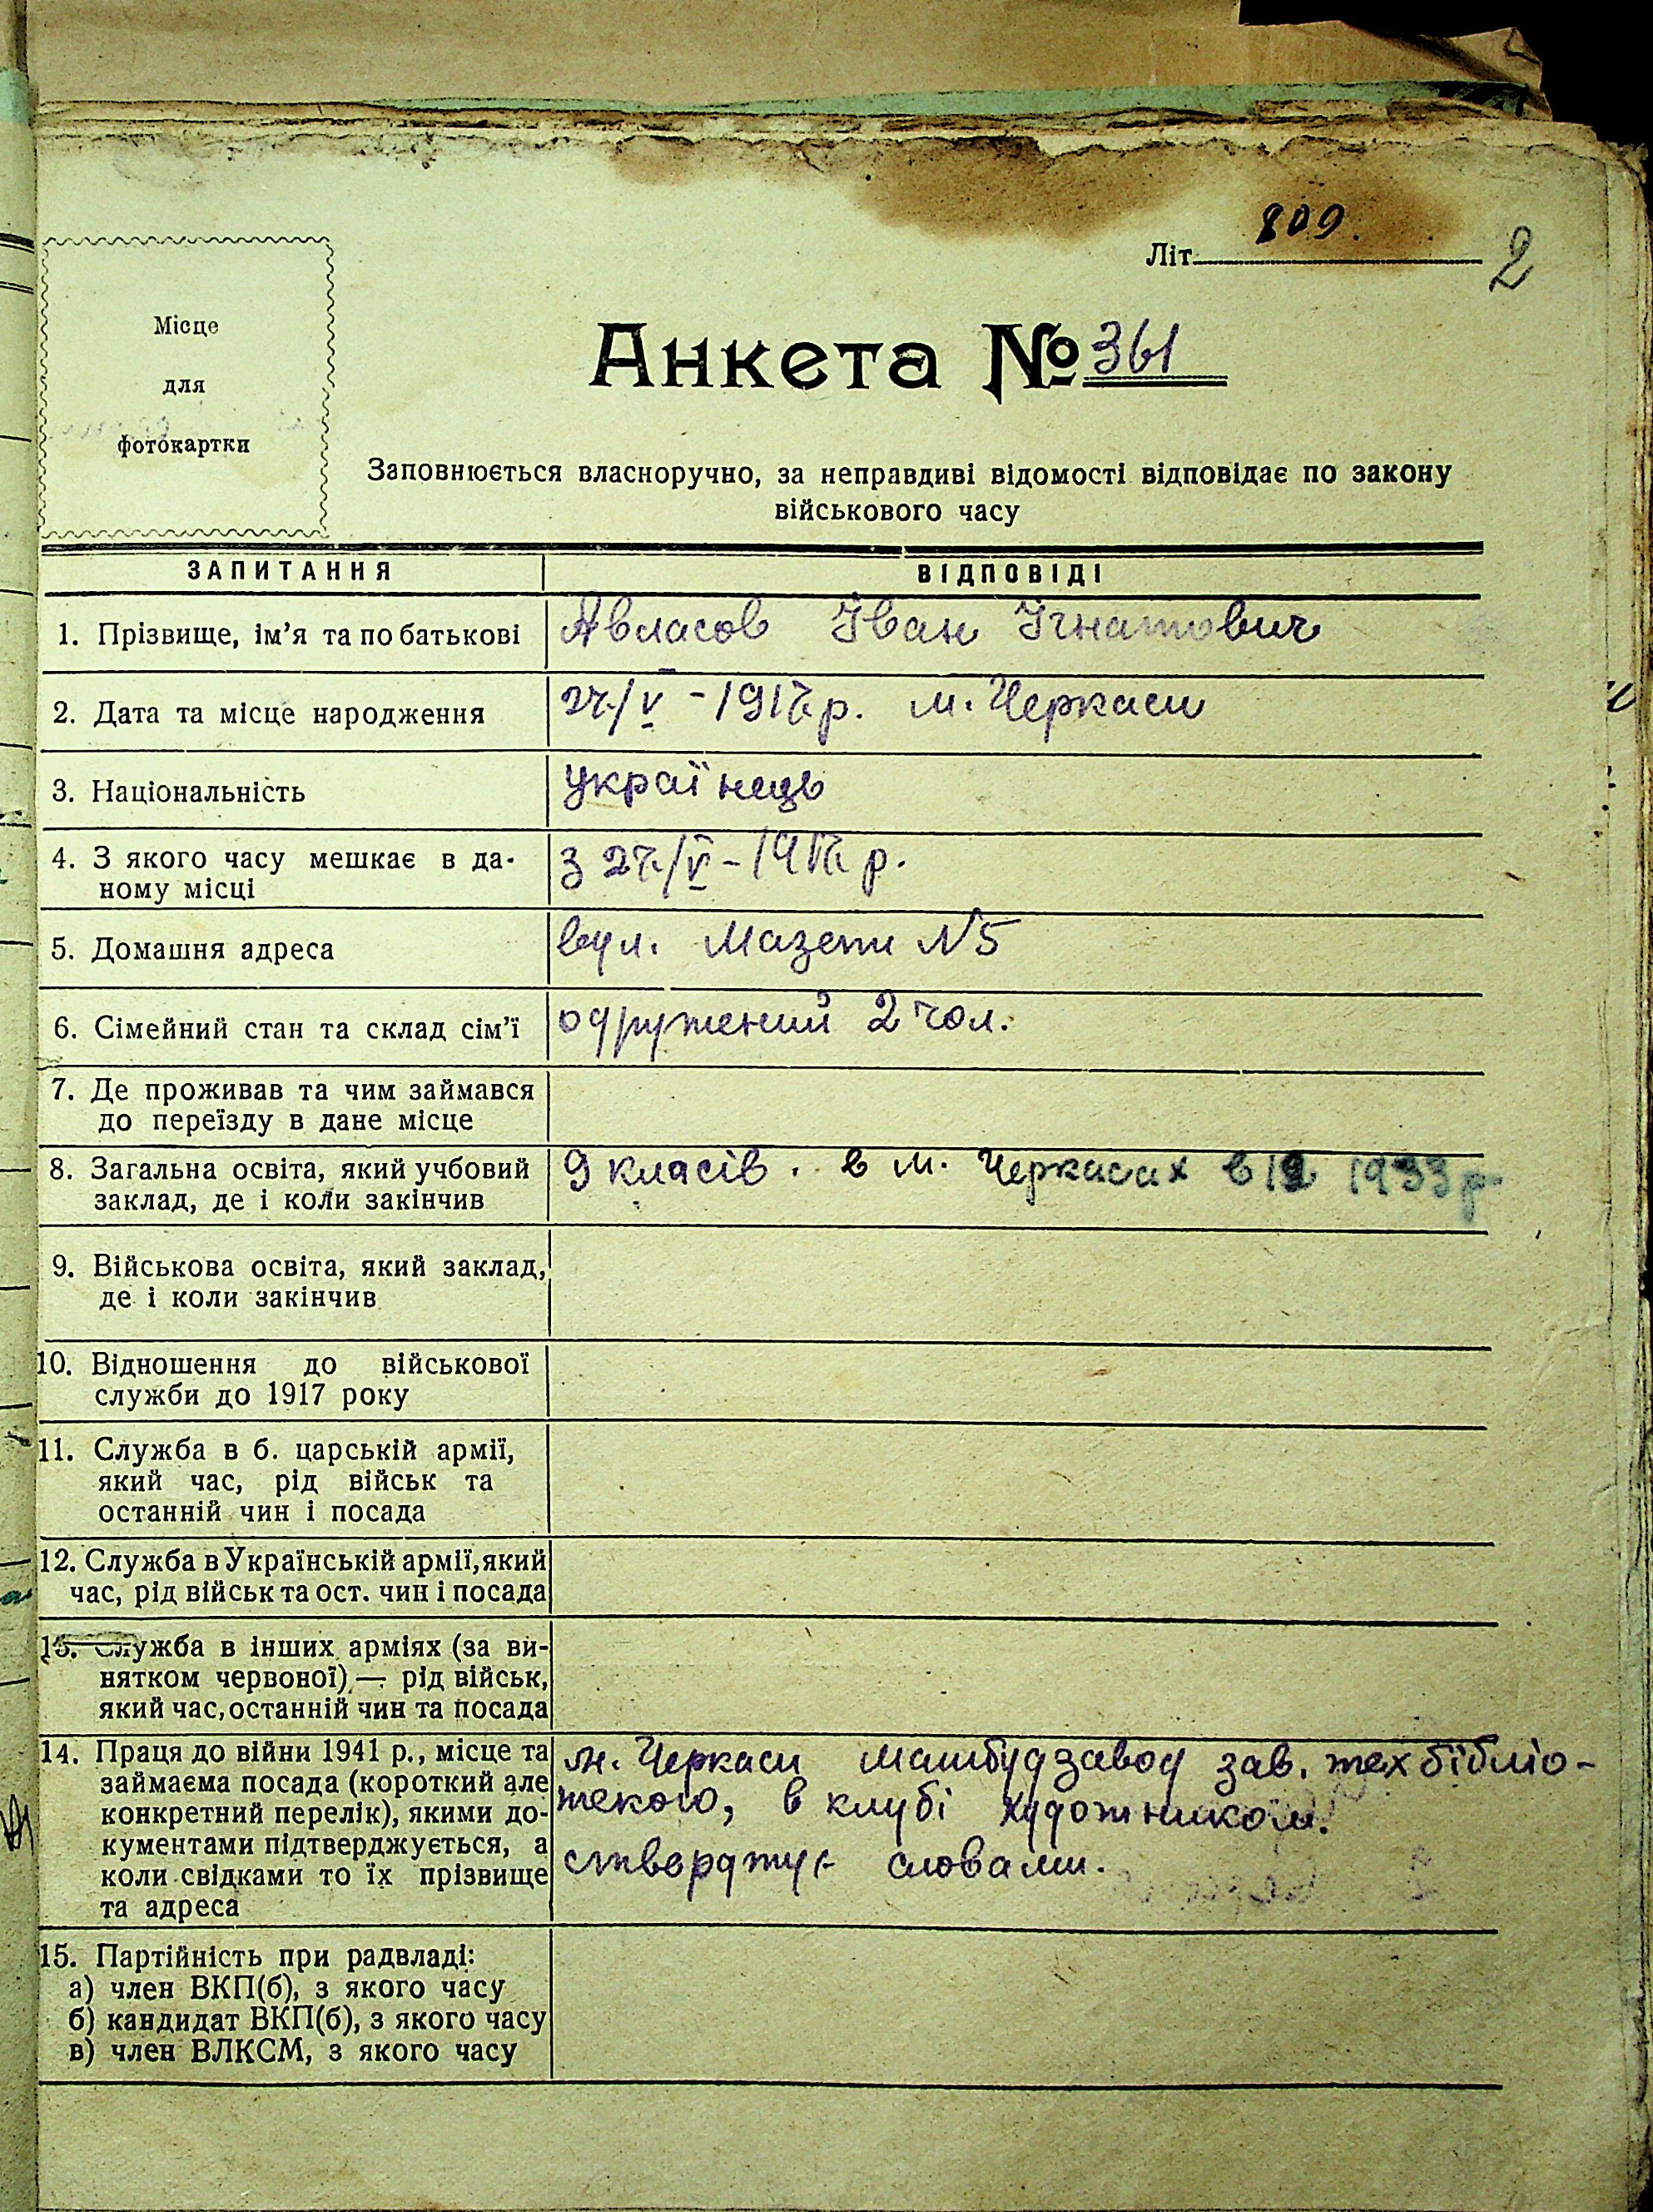 Літ. 809.
2
Місце
для
фотокартки
Анкета № 361
Заповнюється власноручно, за неправдиві відомості відповідає по закону
військового часу
ЗАПИТАННЯ
ВІДПОВІДІ
1. Прізвище, ім'я та по батькові
Авласов Іван Ігнатович
2. Дата та місце народження
27/V - 1917 р. м. Черкаси
3. Національність
українець
4. З якого часу мешкає в да-
ному місці
З 27/V - 1917 р.
5. Домашня адреса
вул. Мазепи N5
6. Сімейний стан та склад сім'ї
одружений 2 чол.
7. Де проживав та чим займався
до переїзду в дане місце
8. Загальна освіта, який учбовий
заклад, де і коли закінчив
9 класів. в м. Черкасах в 1933 р.
9. Військова освіта, який заклад,
де і коли закінчив
10. Відношення до військової
служби до 1917 року
11. Служба в б. царській армії,
який час, рід військ та
останній чин і посада
12. Служба в Українській армії, який
час, рід військ та ост. чин і посада
13. Служба в інших арміях (за ви-
нятком червоної) — рід військ,
який час, останній чин та посада
14. Праця до війни 1941 р., місце та
займаєма посада (короткий але
конкретний перелік), якими до-
кументами підтверджується, а
коли свідками то їх прізвище
та адреса
м. Черкаси машбудзавод зав. техбібліо-
текою, в клубі художником.
стверджує словами.
15. Партійність при радвладі:
а) член ВКП(б), з якого часу
б) кандидат ВКП(б), з якого часу
в) член ВЛКСМ, з якого часу